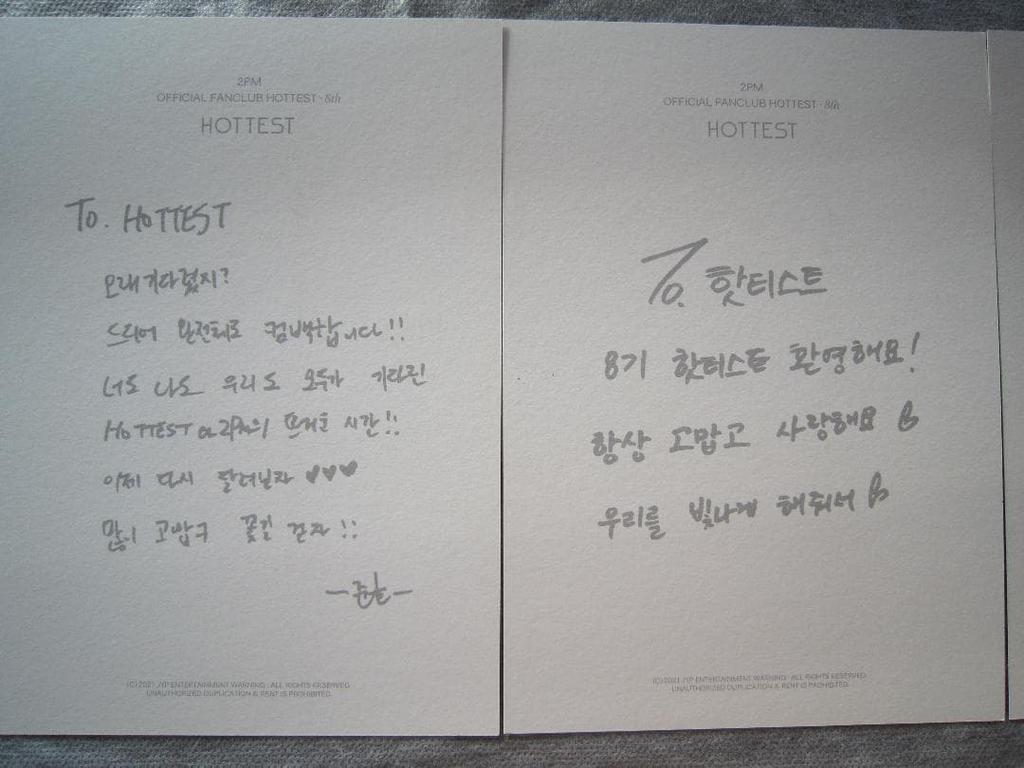 2PM
OFFICIAL FANCLUB HOTTEST · 8th
HOTTEST
To. HOTTEST
오래 기다렸지?
드디어 완전체로 컴백합니다!!
너도 나도 우리도 모두가 기다린
HOTTEST와 2PM의 뜨거운 시간!!
이제 다시 달려보자 ♥♥♥
많이 고맙구 꽃길 걷자!!
2PM
OFFICIAL FANCLUB HOTTEST · 8th
HOTTEST
To. 핫티스트
8기 핫티스트 환영해요!
항상 고맙고 사랑해요
우리를 빛나게 해줘서
(C) 2021 JYP ENTERTAINMENT WARNING : ALL RIGHTS RESERVED.
UNAUTHORIZED DUPLICATION & RENT IS PROHIBITED.
(C) 2021 JYP ENTERTAINMENT WARNING : ALL RIGHTS RESERVED.
UNAUTHORIZED DUPLICATION & RENT IS PROHIBITED.